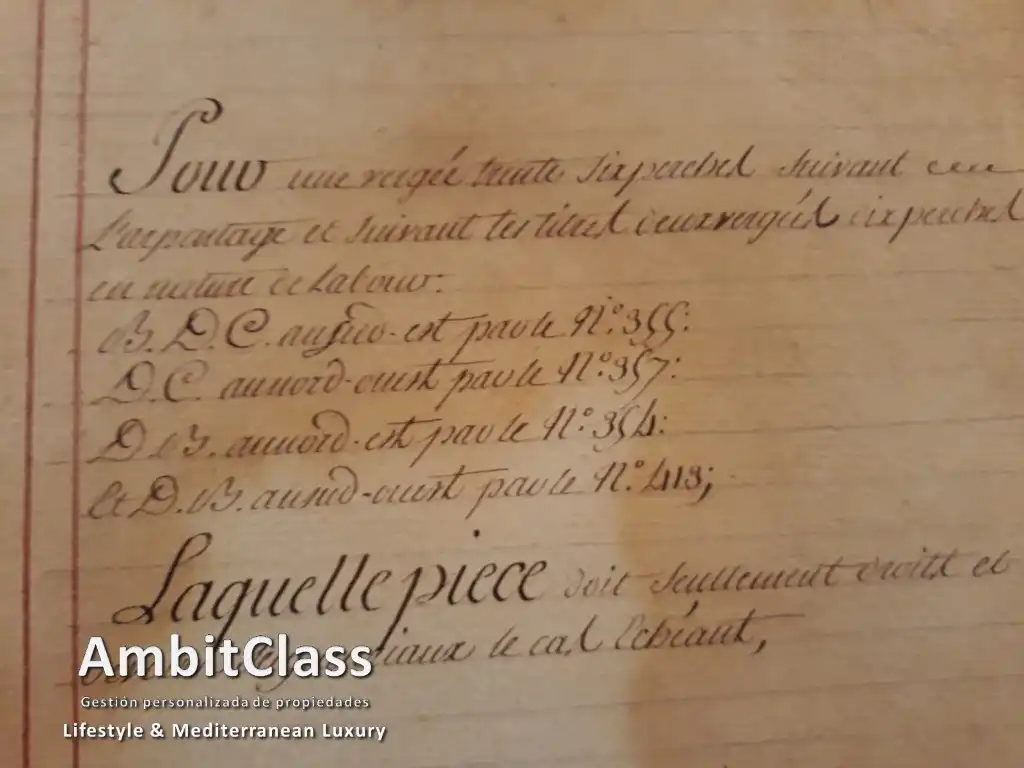 Pour une vergée trente six perches suivant
L'arpentage et suivant les titres deux vergées six perches
en nature de labour:
B. D. C. au sud-est par le N.º 355:
D. C. au nord-ouest par le N.º 357:
D B. au nord-est par le N.º 354:
et D. B. au sud-ouest par le N.º 413;
Laquelle piece doit seullement droits et
le cas Echéant,
AmbitClass
Gestión personalizada de propiedades
Lifestyle & Mediterranean Luxury